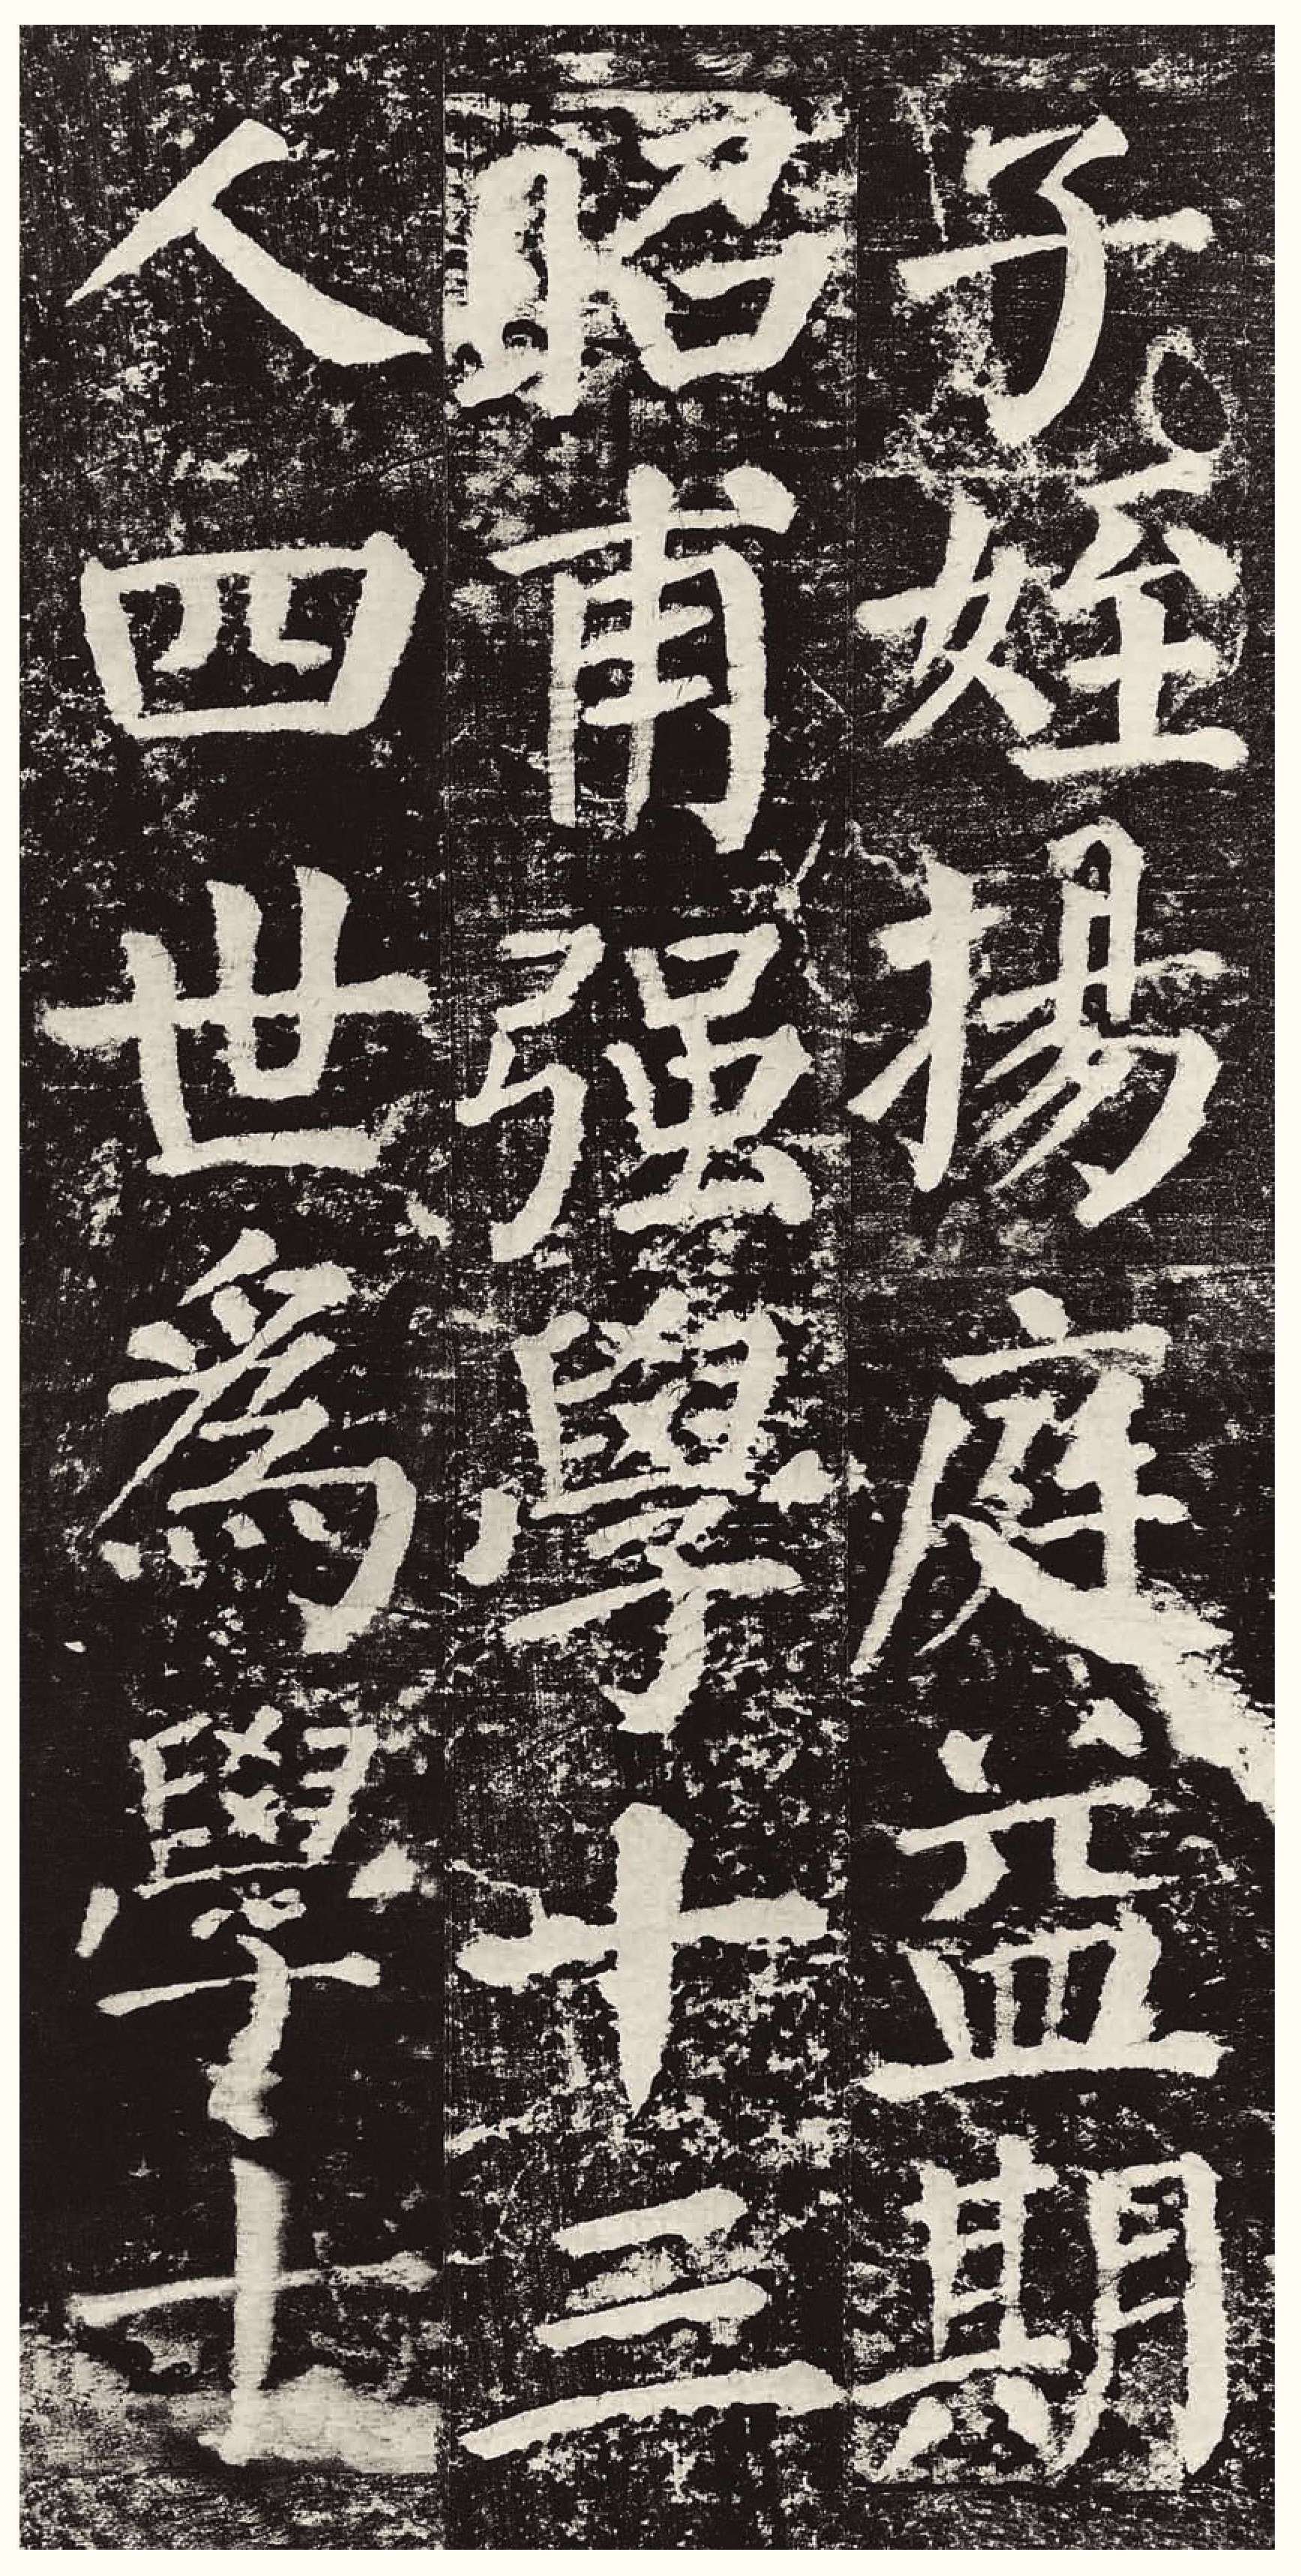 子姪揚庭益期
昭甫强學十三
人四世爲學士